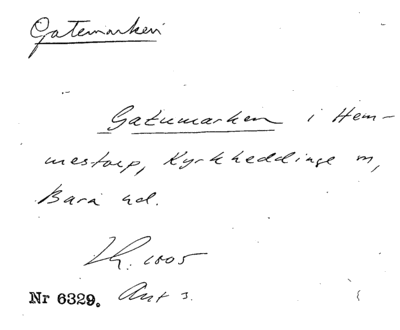 Gatemarken
Gatumarken i Hem-
mestorp, Kyrkheddinge m,
Bara hd.
Lh. 1005
Nr 6329. Ant 3.